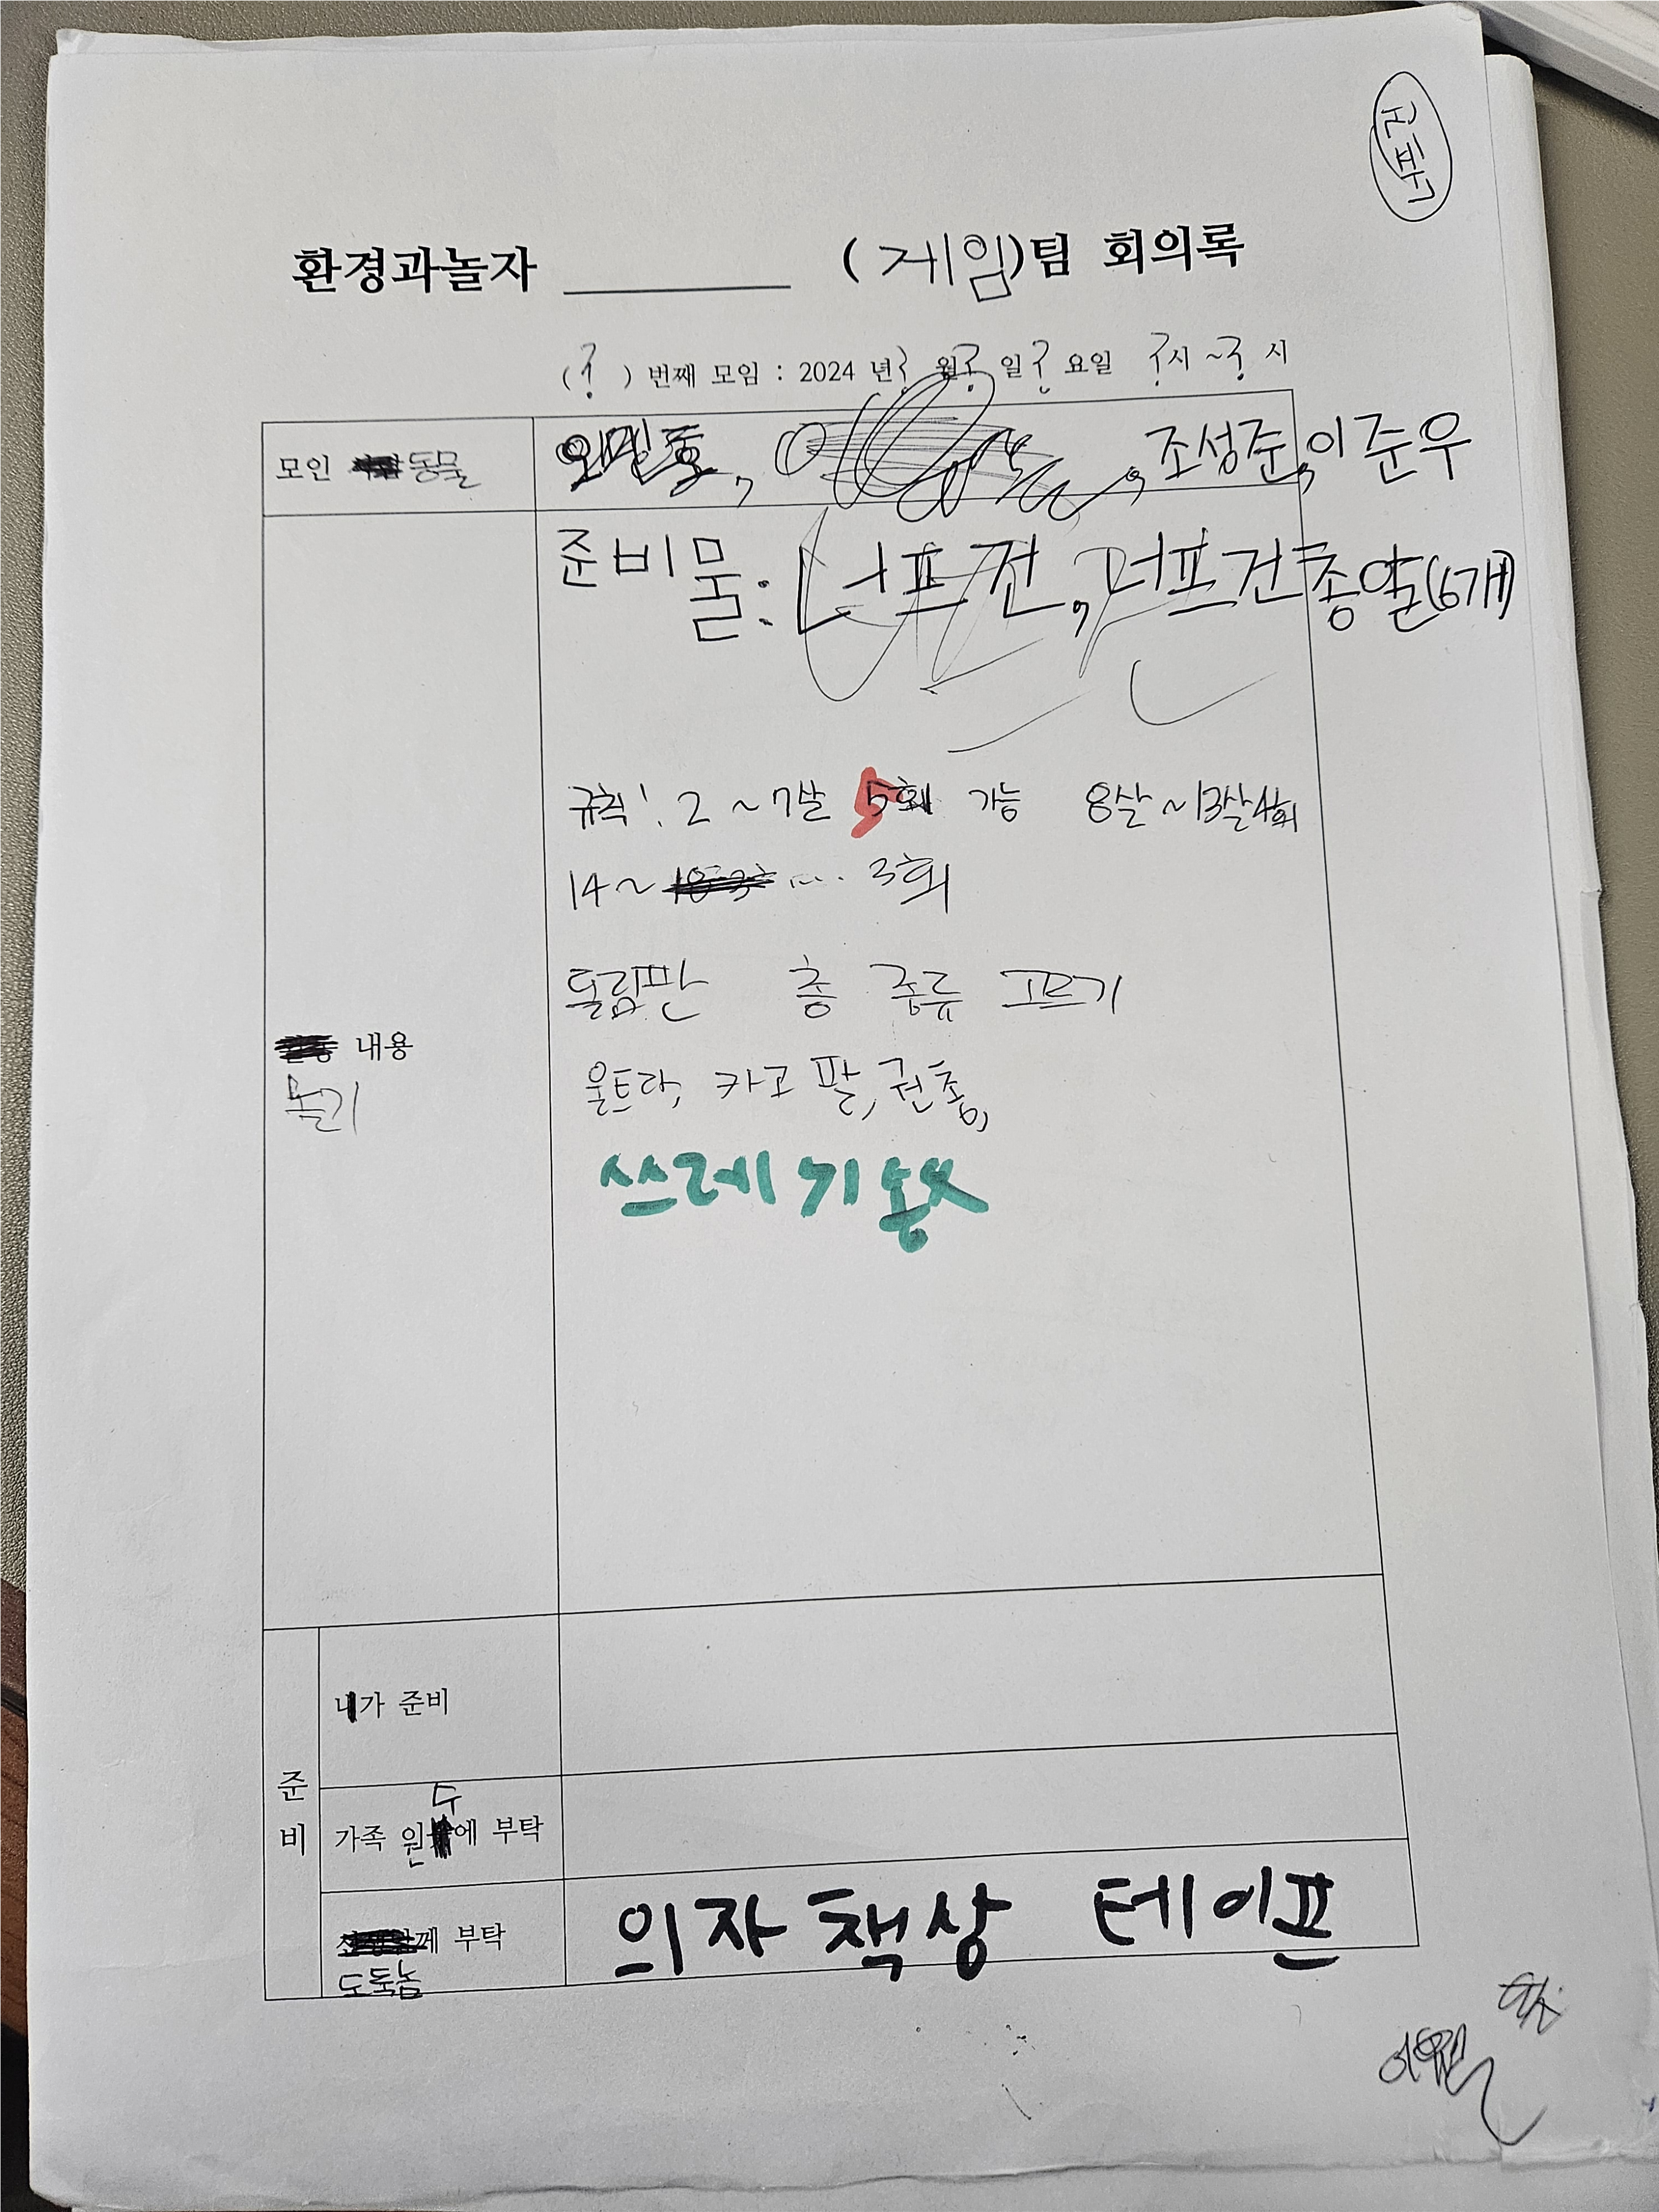 환경과놀자 ________ (게임)팀 회의록
(?) 번째 모임 : 2024 년? 월? 일? 요일 ?시 ~? 시
모인 동물
오민호, 조성준, 이준우
준비물: 너프건, 너프건총알(6개)
규칙! 2~7살 5회 가능 8살~13살4회
14~ ... 3회
돌림판 총 종류 고르기
울트라, 카고팔, 권총,
쓰레기봉
내용
놀기
준비
내가 준비
가족 원수에 부탁
께 부탁
도둑놈
의자 책상 테이프